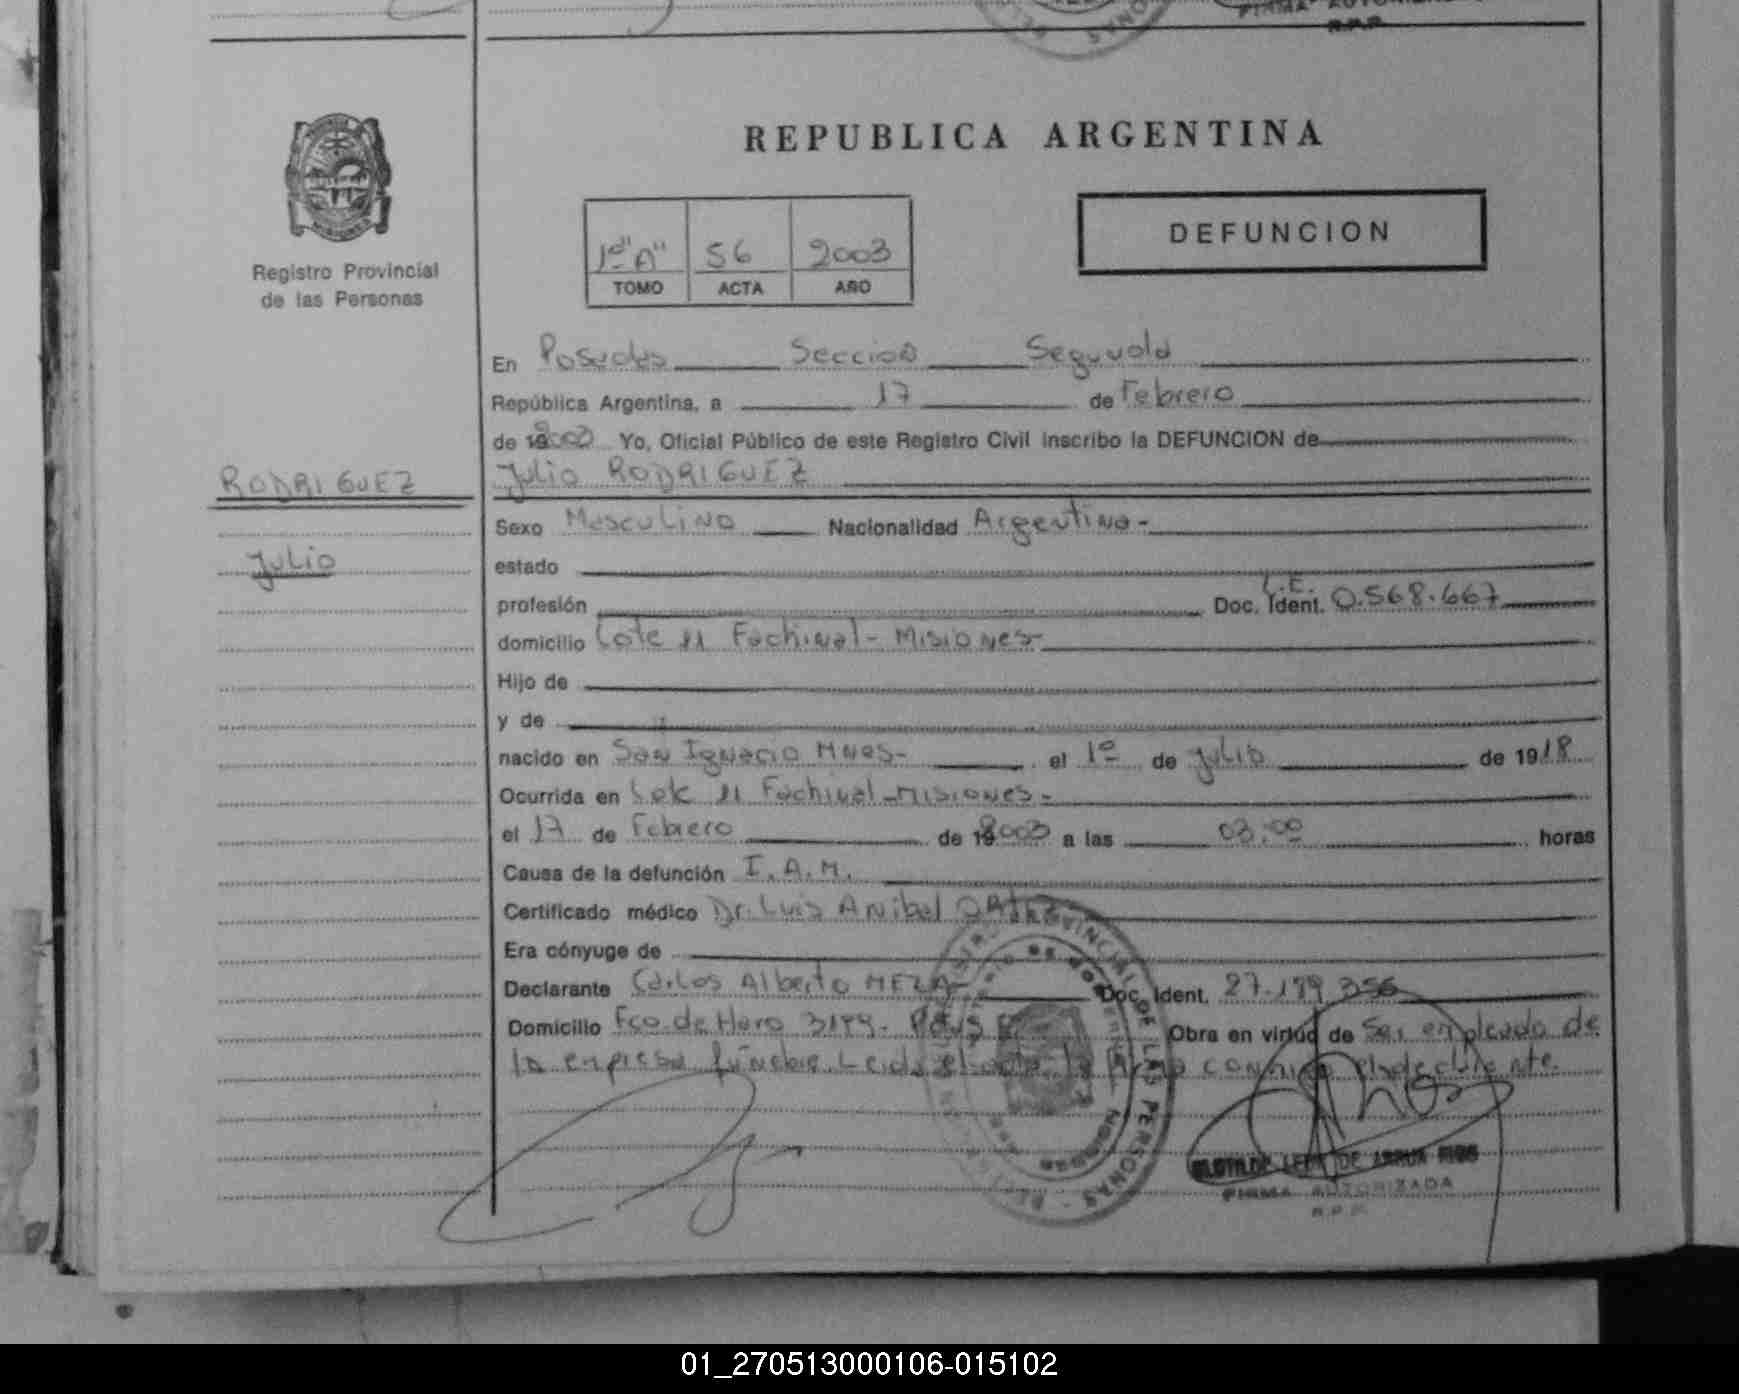 FIRMA AUTORIZADA
R.P.P.
REPUBLICA ARGENTINA
1º "A" 56 2003
TOMO ACTA AÑO
DEFUNCION
Registro Provincial
de las Personas
En Posadas Sección Segunda
República Argentina, a 17 de Febrero
de 2003 Yo, Oficial Público de este Registro Civil inscribo la DEFUNCION de
RODRIGUEZ
Julio RODRIGUEZ
Sexo Masculino Nacionalidad Argentina-
Julio
estado
profesión Doc. Ident. L.E. 0.568.667
domicilio Lote 11 Fachinal - Misiones-
Hijo de
y de
nacido en San Ignacio Mnes- el 1º de Julio de 1918
Ocurrida en Lote 11 Fachinal - Misiones-
el 17 de Febrero de 2003 a las 03:00 horas
Causa de la defunción I.A.M.
Certificado médico Dr. Luis Anibal
Era cónyuge de
Declarante Carlos Alberto MEZA Doc. Ident. 27.199.356
Domicilio Fco. de Haro 3199- Obra en virtud de Ser empleado de
la empresa fúnebre. Leida el acta la firma conmigo el declarante.
REGISTRO PROVINCIAL DE LAS PERSONAS
DE ARRUA RIOS
FIRMA AUTORIZADA
R.P.P.
01_270513000106-015102